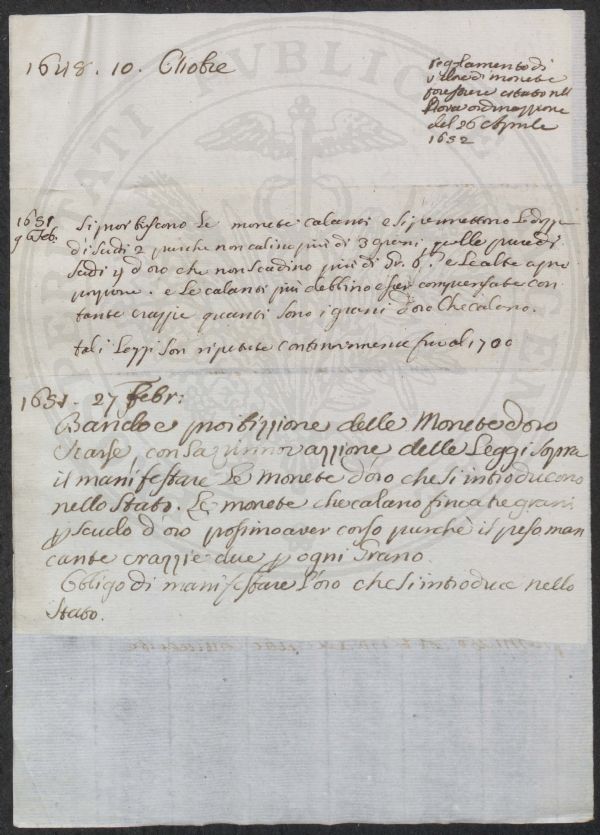 1648. 10. Ottobre
regolamento di
valore di monete
forestiere citato nell
Nova ordinazzione
del 26 Aprile
1652
1651
9 Feb.
Si proibiscono le monete calanti e si permettono le dopp
di Scudi 2 purche non calino più di 3 grani, quelle pure di
Scudi 4 d'oro che non scadino più di gr. 6. e le altre a pro
porzione. e se calanti più debbino esser compensate con
tante crazzie quanti sono i grani d'oro che calano.
tali Leggi son ripetute continuamente fino al 1700
1651. 27 Febr:
Bando e proibizzione delle Monete d'oro
scarse, con la rinnovazzione delle Leggi sopra
il manifestare le monete d'oro che si introducono
nello Stato. Le monete che calano fino a tre grani
p scudo d'oro possino aver corso purchè il peso man
cante crazzie due p ogni Grano.
Obligo di manifestare l'oro che si introduce nello
Stato.
PERITATI PUBLICAE